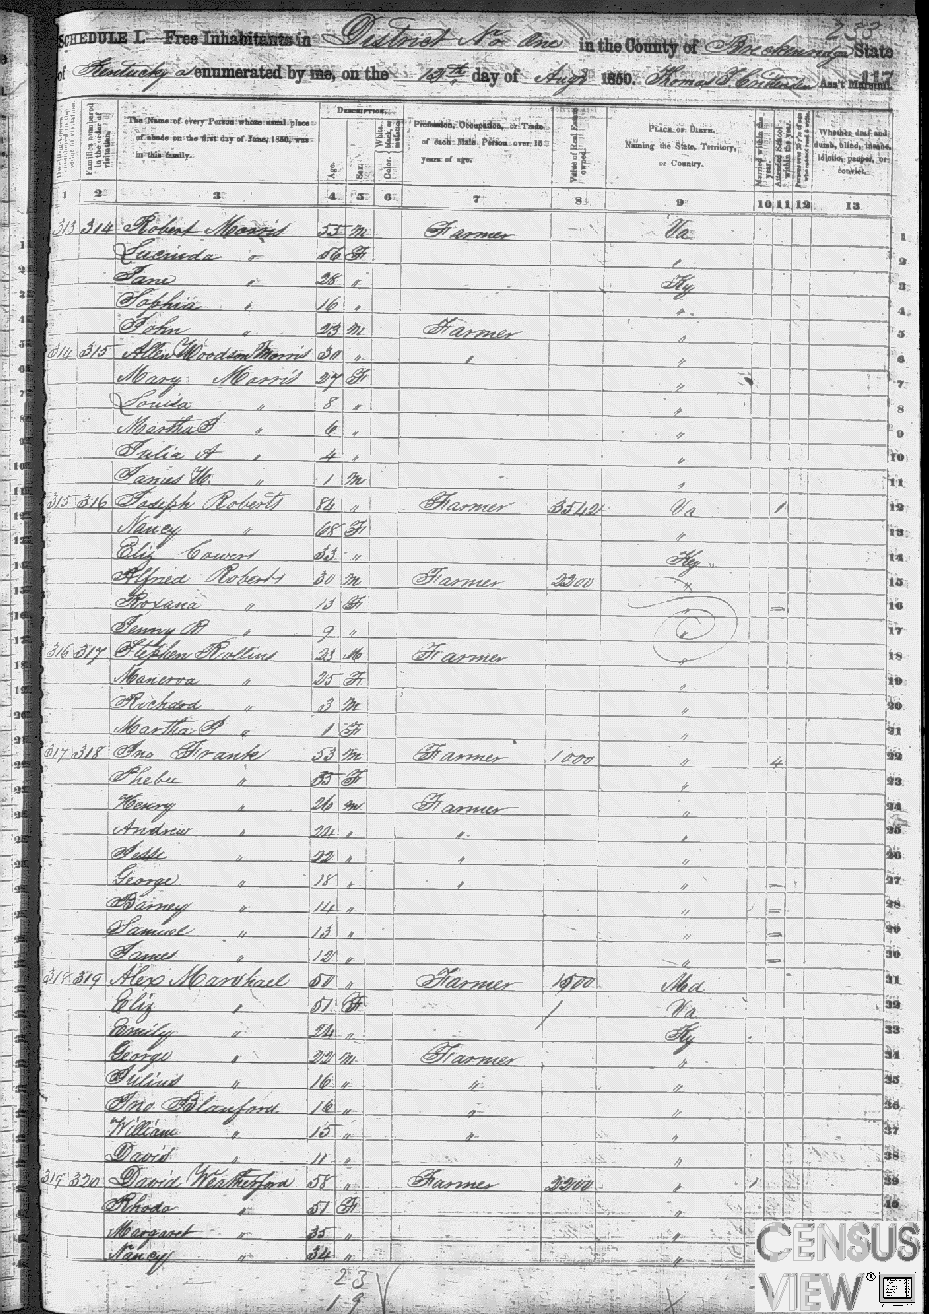 283
SCHEDULE I.—Free Inhabitants in District No One in the County of Breckenridge State
of Kentucky enumerated by me, on the 19th day of Augt 1850. Thomas J. Ass't Marshal. 117
The Name of every Person whose usual place of abode on the first day of June, 1850, was in this family.
DESCRIPTION.
Age.
Sex.
Profession, Occupation, or Trade of each Male Person over 15 years of age.
Value of Real Estate owned.
PLACE OF BIRTH. Naming the State, Territory, or Country.
Married within the year.
Attended School within the year.
Whether deaf and dumb, blind, insane, idiotic, pauper, or convict.
1 2 3 4 5 6 7 8 9 10 11 12 13
313 314 Robert Morris 55 M Farmer Va 1
Lucinda " 56 F " 2
Jane " 28 " Ky 3
Sophia " 16 " " 4
John " 23 M Farmer " 5
314 315 Allen Woodson Morris 30 " " " 6
Mary Morris 27 F " 7
Louisa " 8 " " 8
Martha J " 6 " " 9
Julia A " 4 " " 10
James H. " 1 M " 11
315 316 Joseph Roberts 84 " Farmer 3542 Va 1 12
Nancy " 68 F " 13
Eliz 33 " Ky 14
Alfred Roberts 30 M Farmer 2300 " 15
Roxana " 13 F " 16
Jenny R " 9 " " 17
316 317 Stephen Rollins 23 M Farmer " 18
Manerva " 25 F " 19
Richard " 3 M " 20
Martha " 1 F " 21
317 318 Jno Frank 53 M Farmer 1000 " 4 22
Phebe " 55 F " 23
Henry " 26 M Farmer " 24
Andrew " 24 " " 25
Jesse " 22 " " " 26
George " 18 " " " 27
Barney " 14 " " 28
Samuel " 13 " " 29
James " 12 " " 30
318 319 Alex Marshael 50 " Farmer 1500 Md 31
Eliz " 51 F / Va 32
Emily " 24 " Ky 33
George " 22 M Farmer " 34
Julius " 16 " " " 35
Jno Blanford 16 " " " 36
William " 15 " " " 37
David " 11 " " 38
319 320 David Weatherford 58 " Farmer 2200 " 1 39
Rhoda " 51 F " 40
Margaret " 35 " "
Nancy " 34 " "
23
19
CENSUS
VIEW®